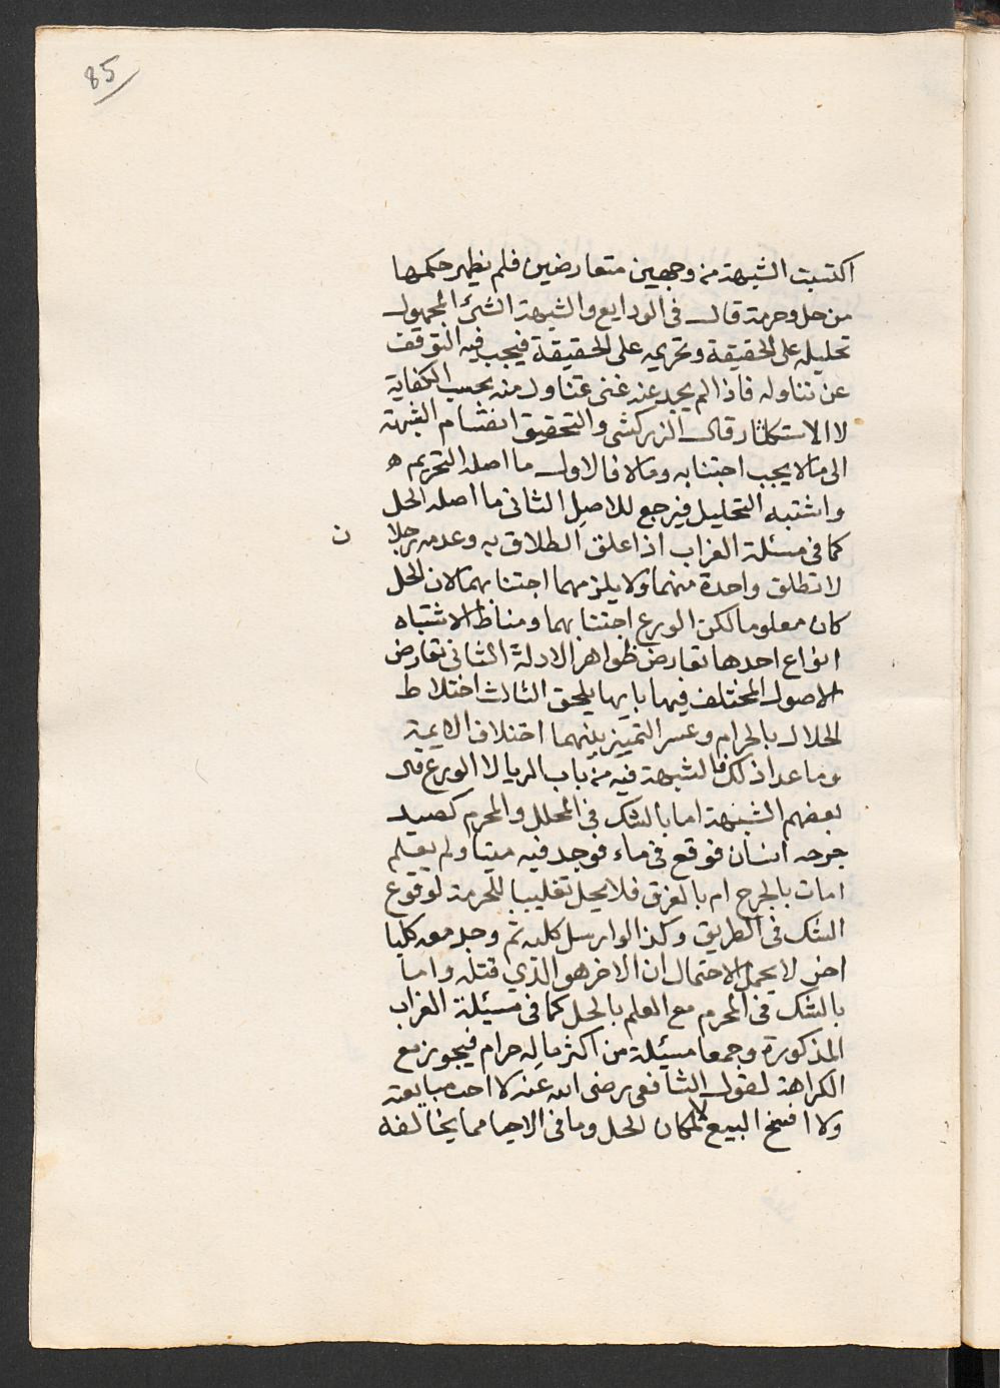 85
اكتسبت الشبهة من وجهين متعارضين فلم يظهر حكمها
من حل وحرمة قال في الودايع والشبهة الشئ المجهول
تحليله على الحقيقة وتحريمه على الحقيقة فيجب فيه التوقف
عن تناوله فاذا لم يجد عنه غنى تناول منه بحسب الكفاية
لا الاستكثار قال الزركشى والتحقيق انقسام الشبهة
الى ما لا يجب اجتنابه وما لا فالاول ما اصله التحريم ه
واشتبه التحليل فيرجع للاصل الثانى ما اصله الحل
كما في مسئلة الغراب اذا علق الطلاق به وعدمه رجلا
ن
لا تطلق واحدة منهما ولا يلزمهما اجتنابهما لان الحل
كان معلوما لكن الورع اجتنابهما ومناط الاشتباه
انواع احدها تعارض ظواهر الادلة الثانى تعارض
الاصول المختلف فيها بايها يلحق الثالث اختلاط
الحلال بالحرام وعسر التمييز بينهما اختلاف الايمة
وما عدا ذلك فالشبهة فيه من باب الريا لا الورع قال
بعضهم الشبهة اما بالشك في المحلل والمحرم كصيد
جرحه انسان فوقع في ماء فوجد فيه ميتا ولم يعلم
امات بالجرح ام بالغرق فلا يحل تغليبا للحرمة لوقوع
الشك في الطريق وكذا لو ارسل كلبه ثم وجد معه كلبا
اخر لا يحل لاحتمال ان الاخر هو الذي قتله واما
بالشك في المحرم مع العلم بالحل كما في مسئلة الغراب
المذكورة وجمعا مسئلة من اكثر ماله حرام فيجوز مع
الكراهة لقول الشافعى رضى الله عنه لا احب مبايعته
ولا افسخ البيع لامكان الحل وما في الاحيا مما يخالفه